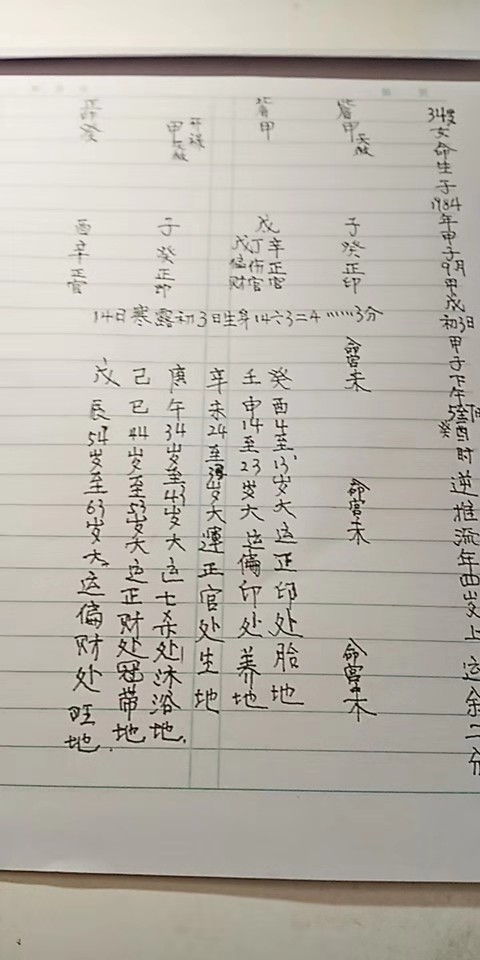 34岁女命生于1984年甲子9月甲戌初3日甲子下午5至7时癸酉时逆推流年四岁上运余二分
甲
子
癸
正印
甲
戌
辛正官
丁伤官
戊偏财
甲
子
癸
正印
癸
酉
辛
正官
14日寒露初3日生 14
3=4……3分
命宫未
命宫未
命宫未
癸酉4至13岁大运正印处胎地
壬申14至23岁大运偏印处养地
辛未24至岁大運正官处生地
庚午34岁至43岁大运七杀处沐浴地.
己巳44岁至53岁大运正财处冠带地
戊辰54岁至63岁大运偏财处旺地.